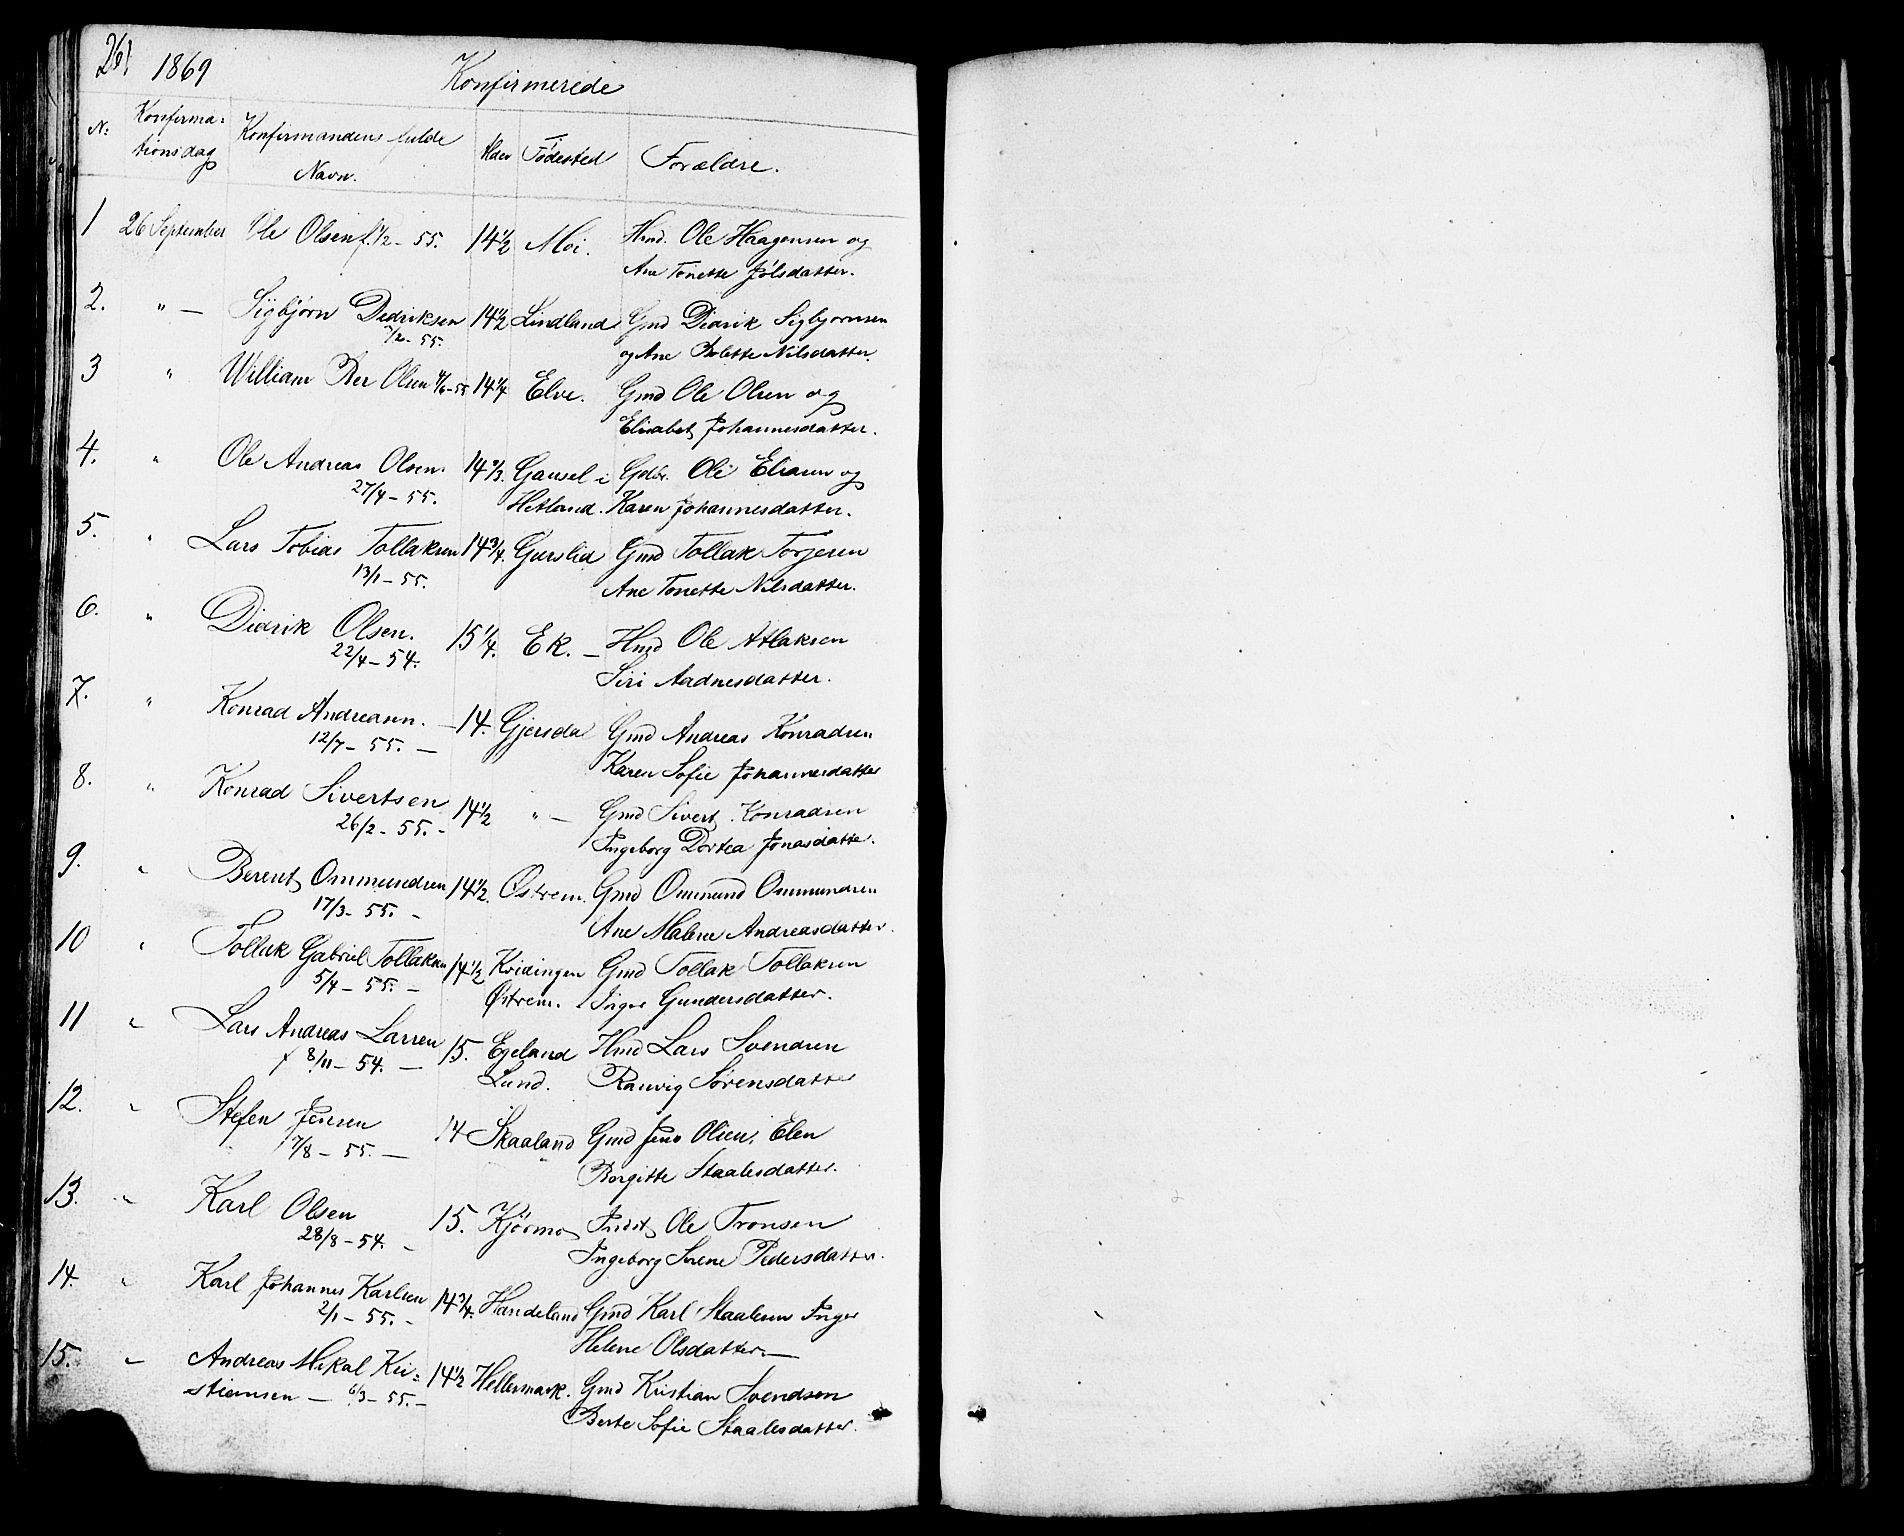 261 1869 Konfirmerede
N: Konfirma- Konfirmandens fulde Alder Födested Forældre.
tionsdag Navn.
1 26 September Ole Olsen f. 1/2 - 55. 14 1/2 Moi. Hmd. Ole Haagensen og
Ane Tonette Jølsdatter.
2. " — Sigbjörn Didriksen 14 1/2 Lindland Gmd Didrik Sigbjornsen
7/2 - 55. og Ane Bolette Nilsdatter.
3 " William Ber Olsen 14 1/4 Elve. Gmd Ole Olsen og
Elisabet Johannesdatter.
4. " Ole Andreas Olsen. Gausel i Gdbr. Ole Eliasen og
27/4 - 55. Hetland. Karen Johannesdatter.
5. " Lars Tobias Tollaksen 14 3/4. Gurslid Gmd Tollak Torjesen
13/1 - 55. Ane Tonette Nilsdatter.
6. " Didrik Olsen. 15 1/4. Ek. — Hmd Ole Atlaksen
22/4 - 54. Siri Aadnesdatter.
7. " Konrad Andreasen. — 14. Gjersdal Gmd Andreas Konradsen
12/7 - 55. — Karen Sofie Johannesdatter
8. " Konrad Sivertsen 14 1/2 " — Gmd Sivert Konradsen
26/2 - 55. - Ingeborg Dortea Jonasdatter.
9. " Berent Ommundsen 14 1/2. Østrem. Gmd Ommund Ommundsen
17/3 - 55. - Ane Malene Andreasdatter.
10 " Tollak Gabriel Tollaksen 14 1/2 Kvidingen Gmd Tollak Tollaksen
5/4 - 55. - Østrem. Inger Gundersdatter.
11 " Lars Andreas Larsen 15. Egeland Hmd Lars Svendsen
f 8/11 - 54. — Lund. Ranvig Sörensdatter
12. " Stefen Jensen 14 Skaaland Gmd Jens Olsen, Elen
7/8 - 55. — Borgitte Staalesdatter.
13. " Karl Olsen 15. Kjörmo Indst Ole Tronsen
28/8 - 54. - Ingeborg Serene Pedersdatter.
14. " Karl Johannes Karlsen 14 3/4. Handeland Gmd Karl Staalesen Inger
2/1 - 55. - Helene Olsdatter. —
15. " Andreas Mikal Kri- 14 1/2 Hellesmark. Gmd Kristian Svendsen
stiansen — 6/3 - 55. — Berte Sofie Staalesdatter.